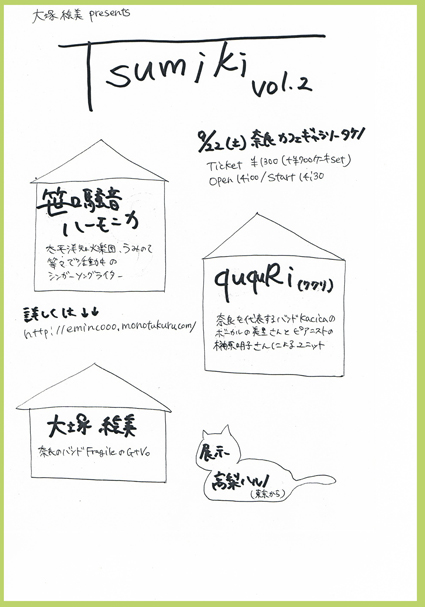 大塚絵美 presents
Tsumiki
vol.2
9/22(土) 奈良 カフェギャラリータケノ
Ticket ¥1300 (+¥700ケーキset)
Open 14:00 / Start 14:30
笹口騒音
ハーモニカ
太平洋不知火楽団、うみのて
等々で活動中の
シンガーソングライター
ququRi (ククリ)
奈良を代表するバンドKacicaの
ボーカルの美里さんとピアニストの
榊原明子さんによるユニット
詳しくは↓↓
http://emincooo.monotukuru.com/
大塚 絵美
奈良のバンド FragileのG+Vo
展示
高梨ハルノ
(東京から)